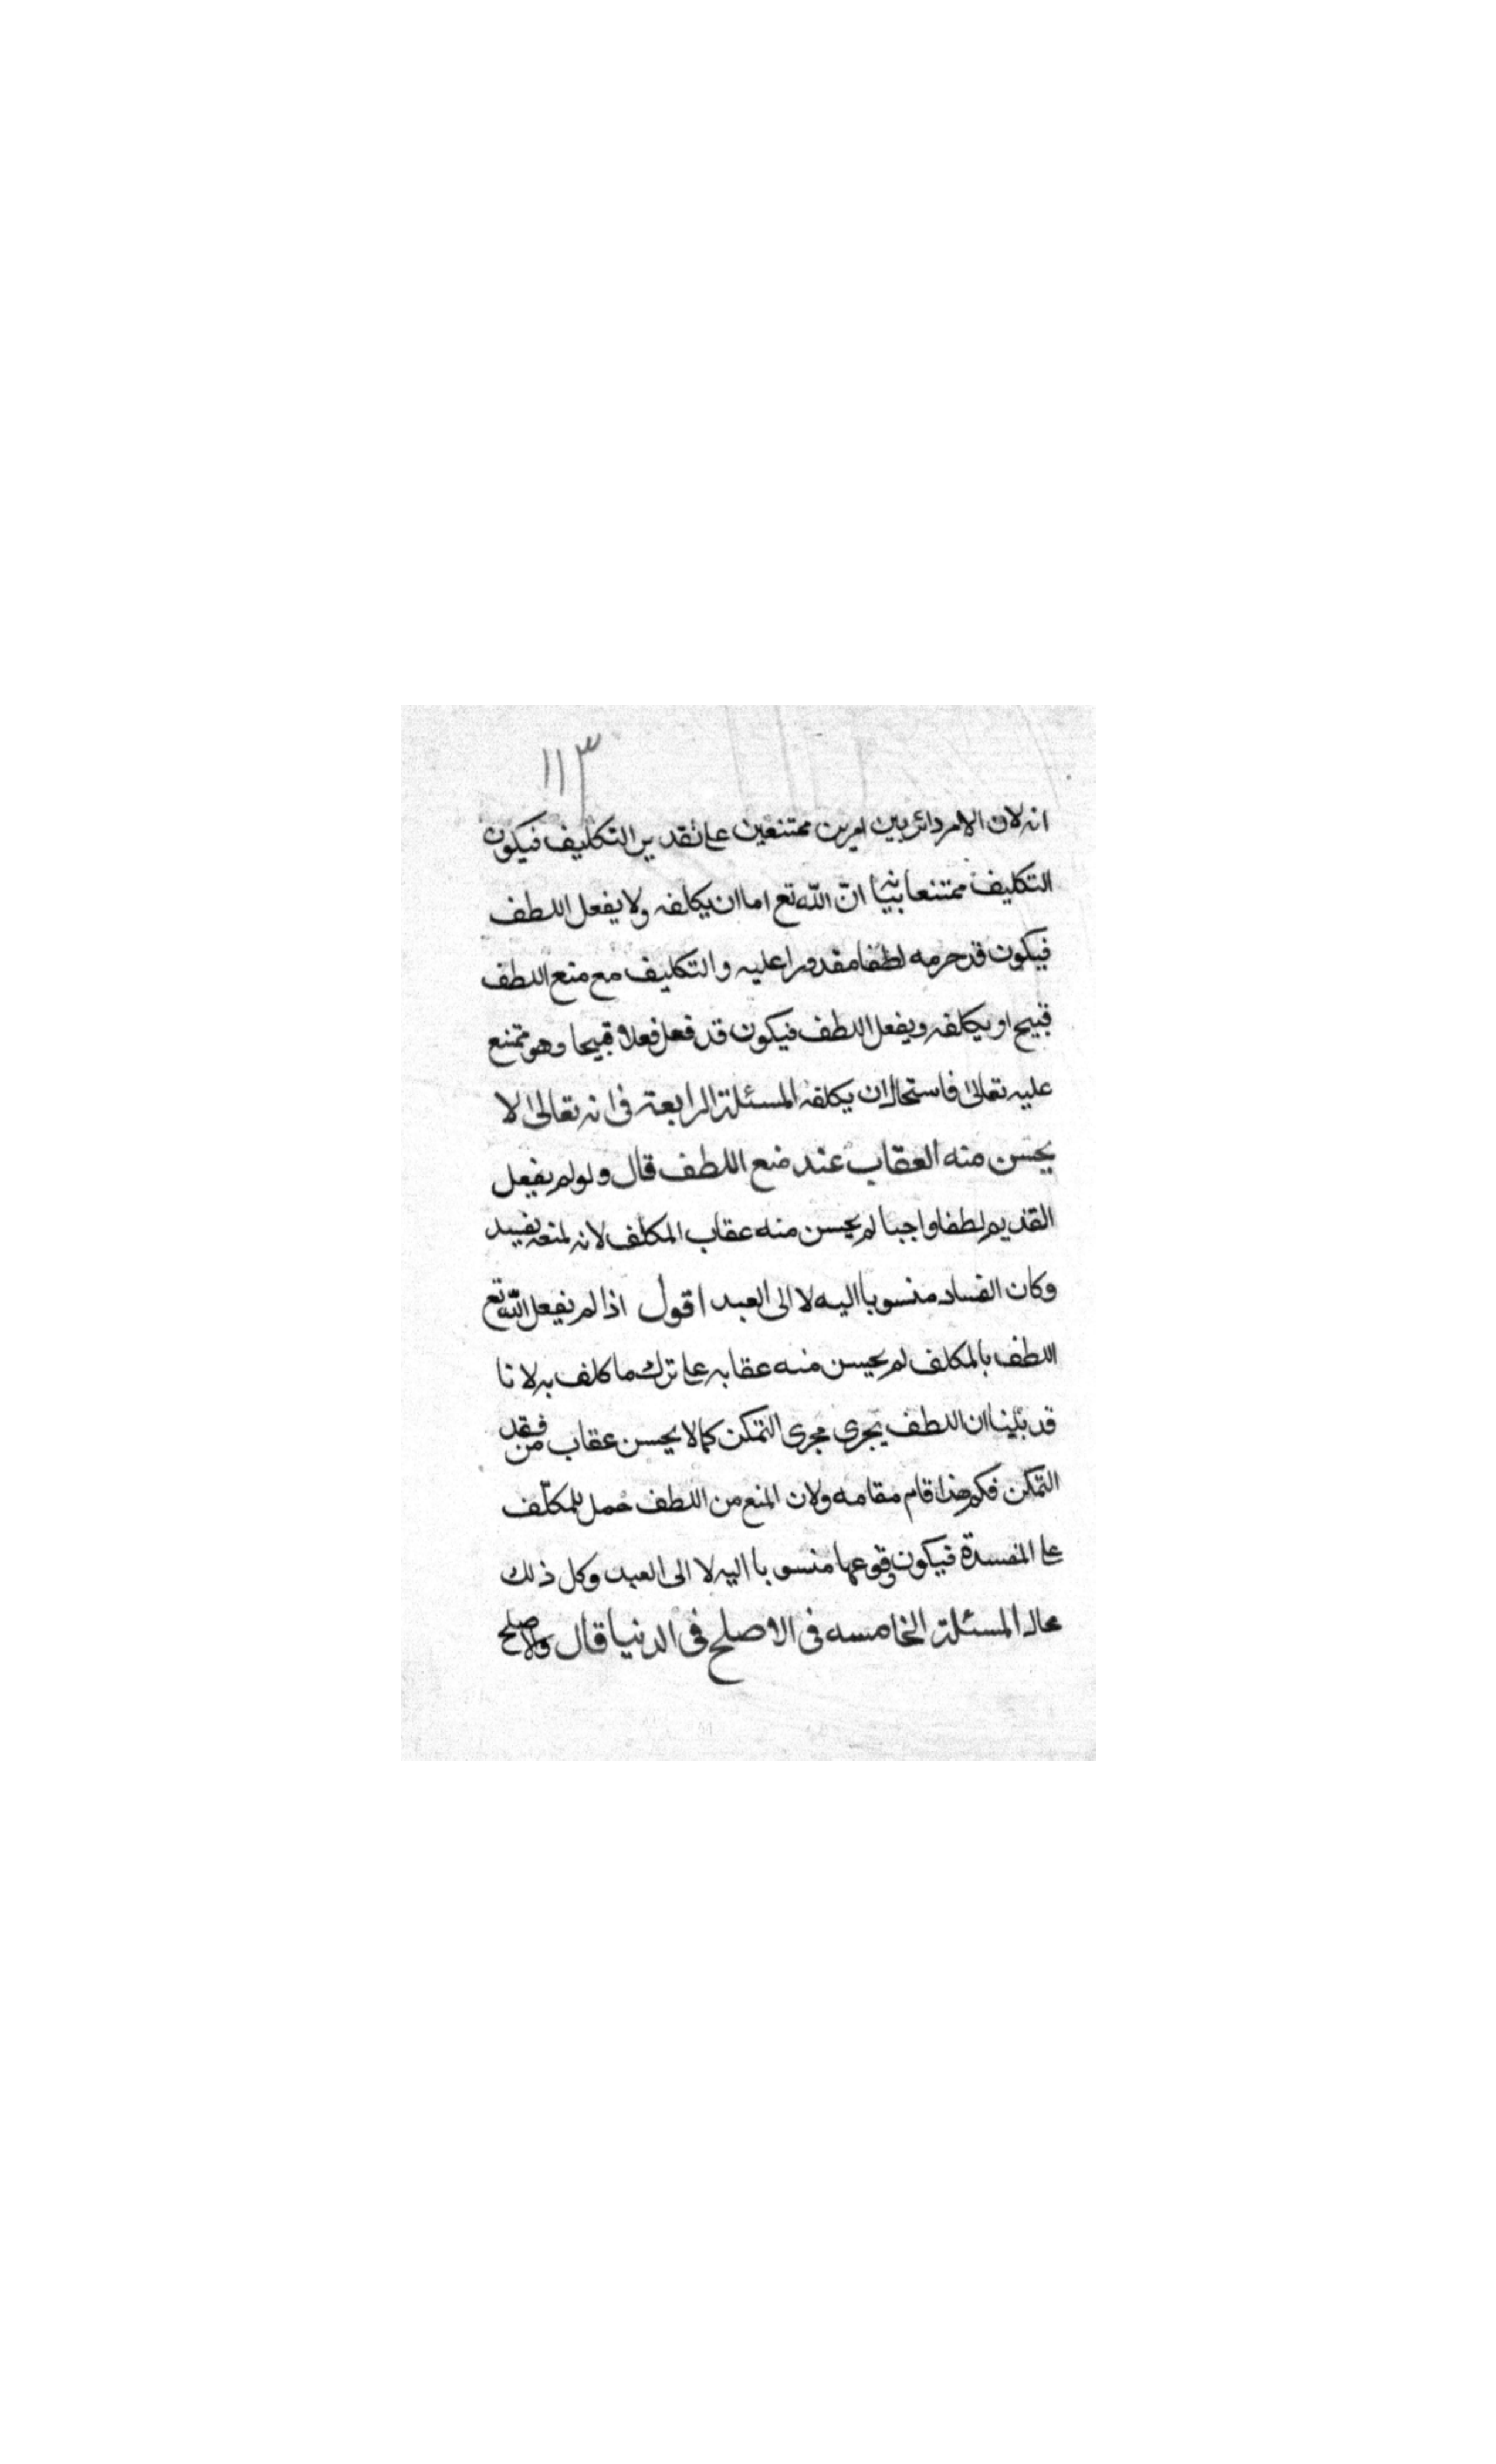 ١١٣
انه لان الامر دائر بين امرين ممتنعين على تقدير التكليف فيكون
التكليف ممتنعا بيانه انّ اللّه تع اما ان يكلفه ولا يفعل اللطف
فيكون قد حرمه لطفا مقدورا عليه والتكليف مع منع اللطف
قبيح او يكلفه ويفعل اللطف فيكون قد فعل فعلا قبيحا وهو ممتنع
عليه تعالى فاستحال ان يكلفه المسئلة الرابعة فى انه تعالى لا
يحسن منه العقاب عند منع اللطف قال ولو لم يفعل
القديم لطفا واجبا لم يحسن منه عقاب المكلف لانه لمنعه يفسد
وكان الفساد منسوبا اليه لا الى العبد اقول اذا لم يفعل اللّه تع
اللطف بالمكلف لم يحسن منه عقابه على ترك ما كلف به لانا
قد بيّنا ان اللطف يجرى مجرى التمكن كما لا يحسن عقاب من فقد
التمكن فكم هذا قام مقامه ولان المنع من اللطف حمل للمكلّف
على المفسدة فيكون وقوعها منسوبا اليه لا الى العبد وكل ذلك
محال المسئلة الخامسه فى الاصلح فى الدنيا قال والاصلح